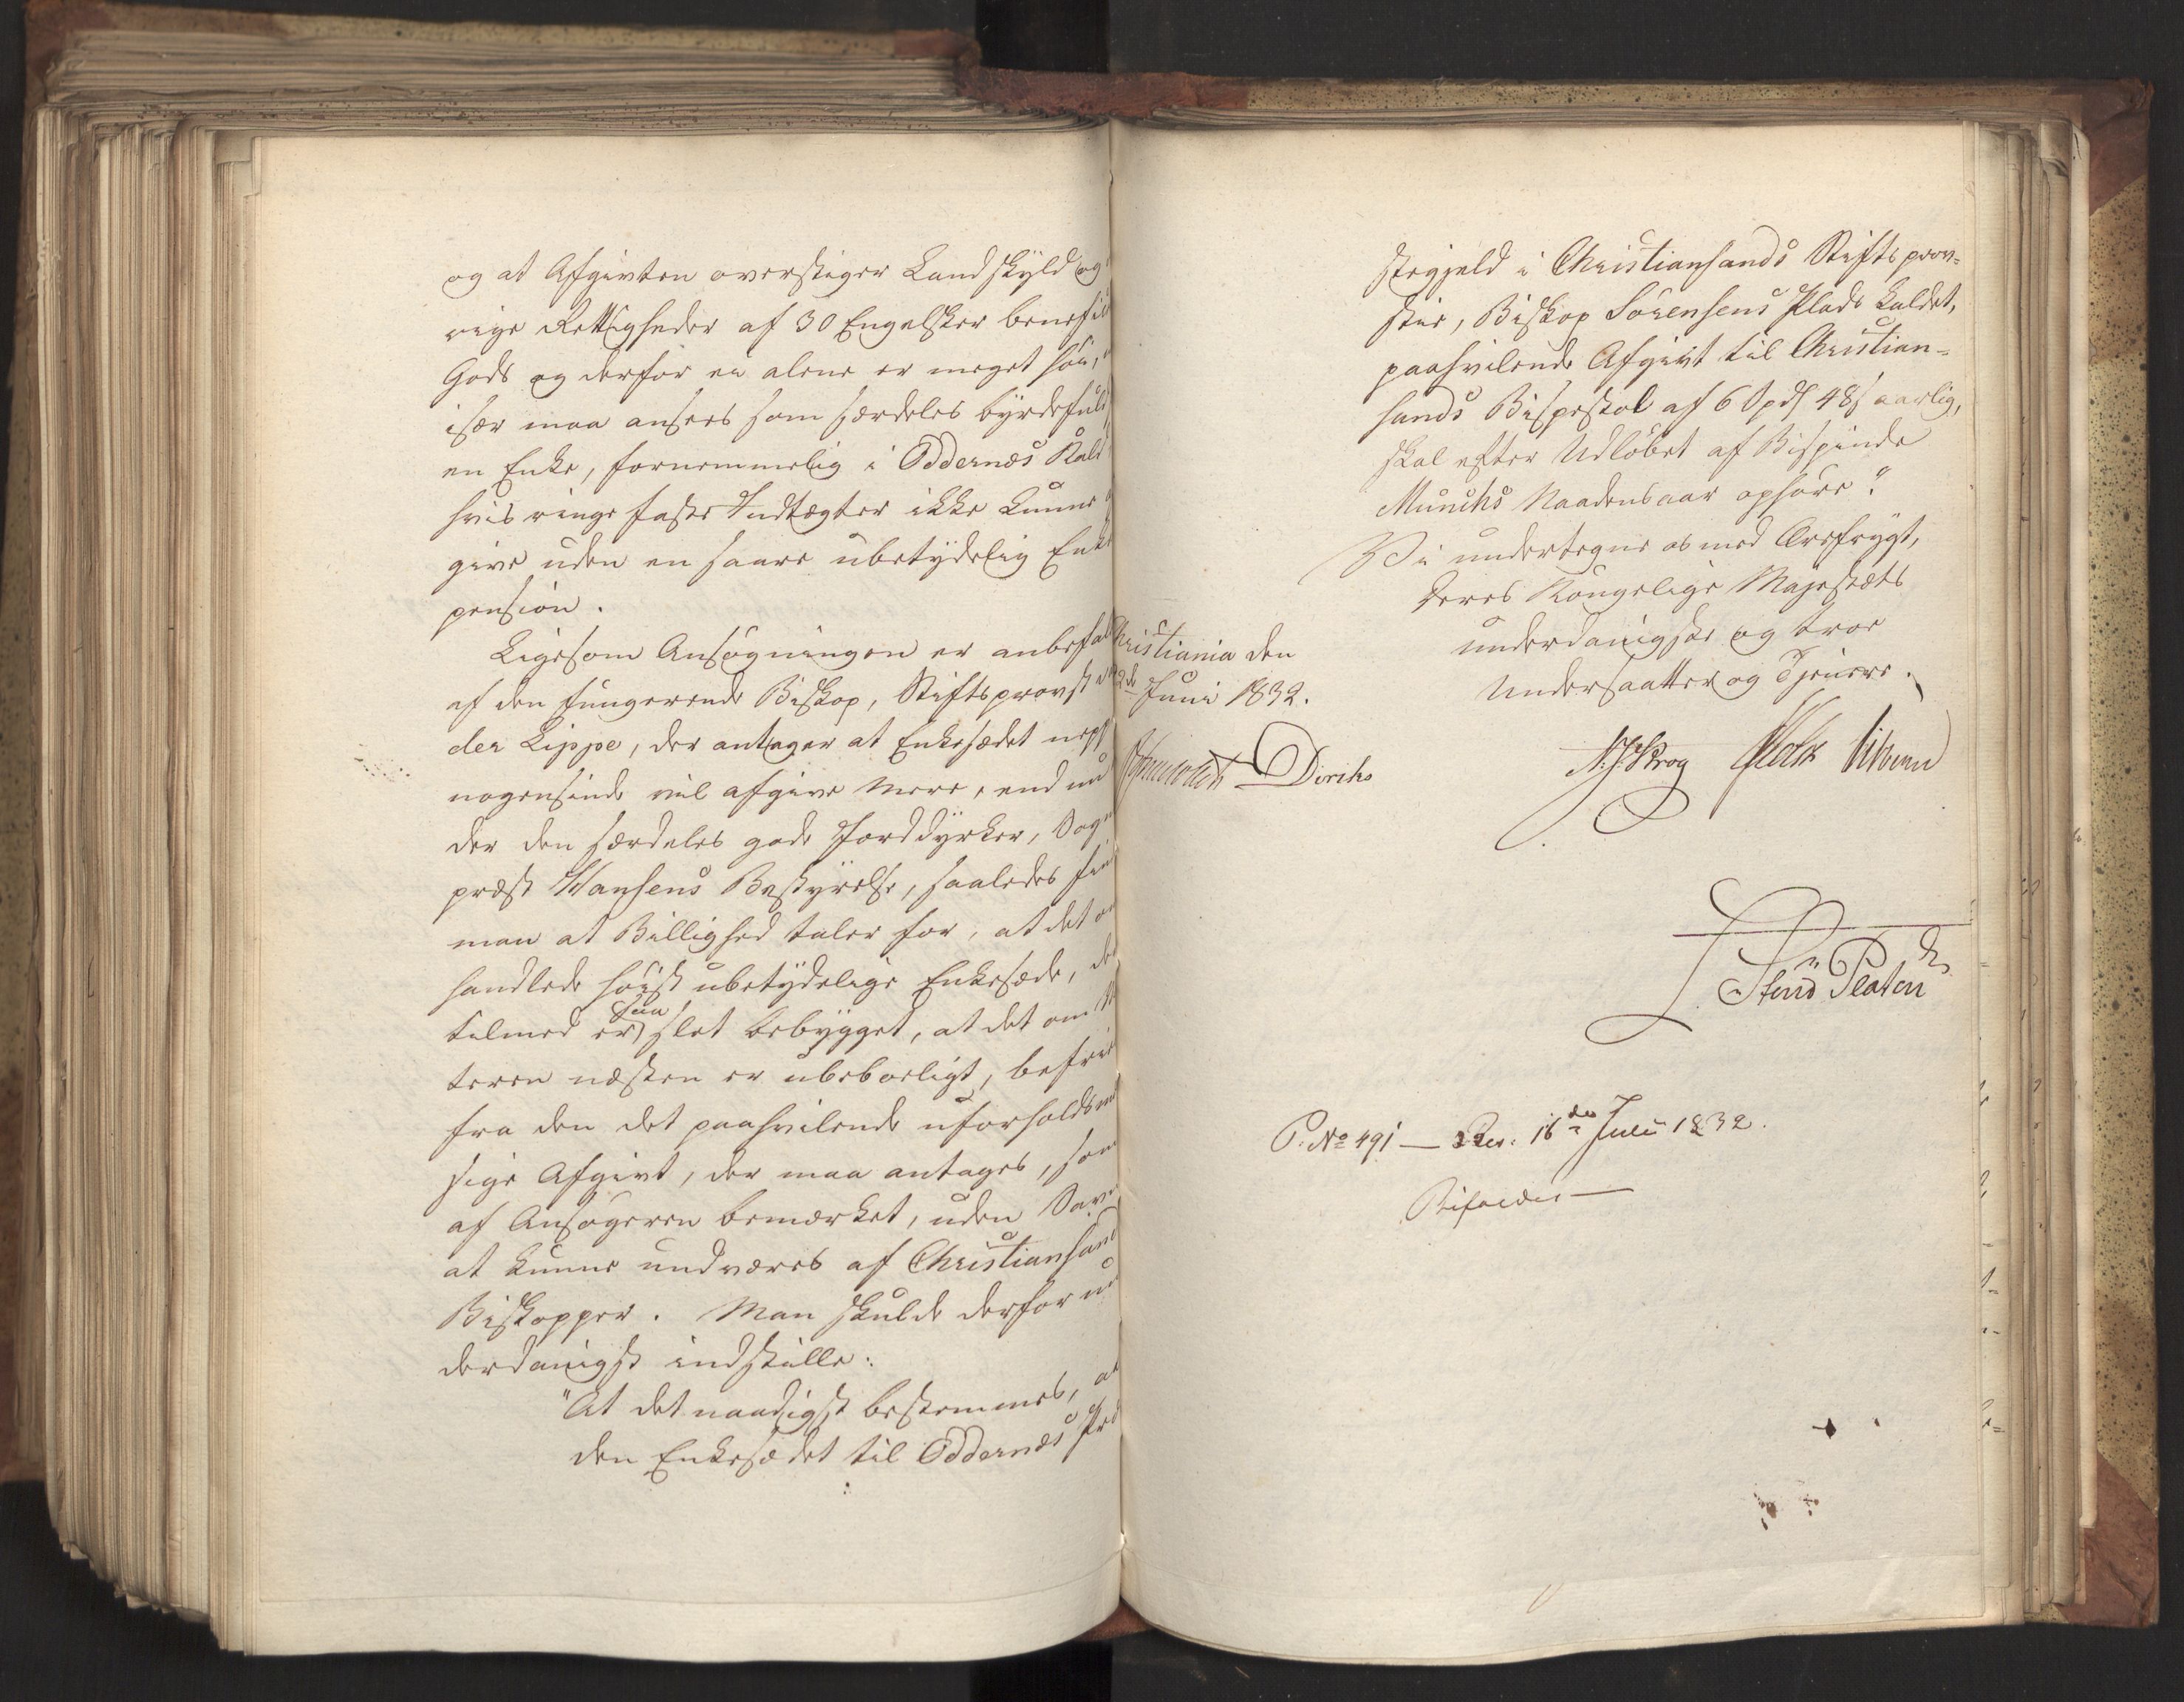 og at Afgivten overstiger Landskyld og
rige Rettigheder af 30 Engelsker benefi
Gods og derfor ei alene er meget höi,
især maa ansees som særdeles byrdefuld
en Enke, fornemmelig i Oddernæs Kald
hvis ringe faste Indtægter ikke kunne
give uden en saare ubetydelig Enke
pension.
Ligesom Ansögningen er anbefal
af den fungerende Biskop, Stiftsprovst
der Lippe, der antager at Enkesædet nepp
nogensinde vil afgive mere, end un
der den særdeles gode Jorddyrker, Sogne
præst Hansens Bestyrelse, saaledes fin
man at Billighed taler for, at det om
handlede höist ubetydelige Enkesæde, der
tilmed er saa slet bebygget, at det om
teren næsten er ubeboeligt, befri
fra den det paahvilende uforholdsmæ
sige Afgivt, der maa antages, som
af Ansögeren bemærket, uden Savn
at kunne undværes af Christiansand
Biskopper. Man skulde derfor un
derdanigst indstille:
"At det naadigst bestemmes, at
den Enkesædet til Oddernæs Præ
stegjeld i Christiansands Stiftsprov-
stie, Biskop Sörensens Plads kaldet,
paahvilende Afgivt til Christian-
sands Bispestol af 6 Spd 48 s aarlig,
skal efter Udlöbet af Bispinde
Munchs Naadensaar ophöre."
Vi undertegne os med Ærefrygt,
Deres Kongelige Majestæts
underdanigste og troe
Undersaatter og Tjenere.
hristiania den
2de Juni 1832.
Diriks
N. J. Krog Holst Vibe
Platen
P. No 491 — Res. 16de Juli 1832.
Bifaldes —